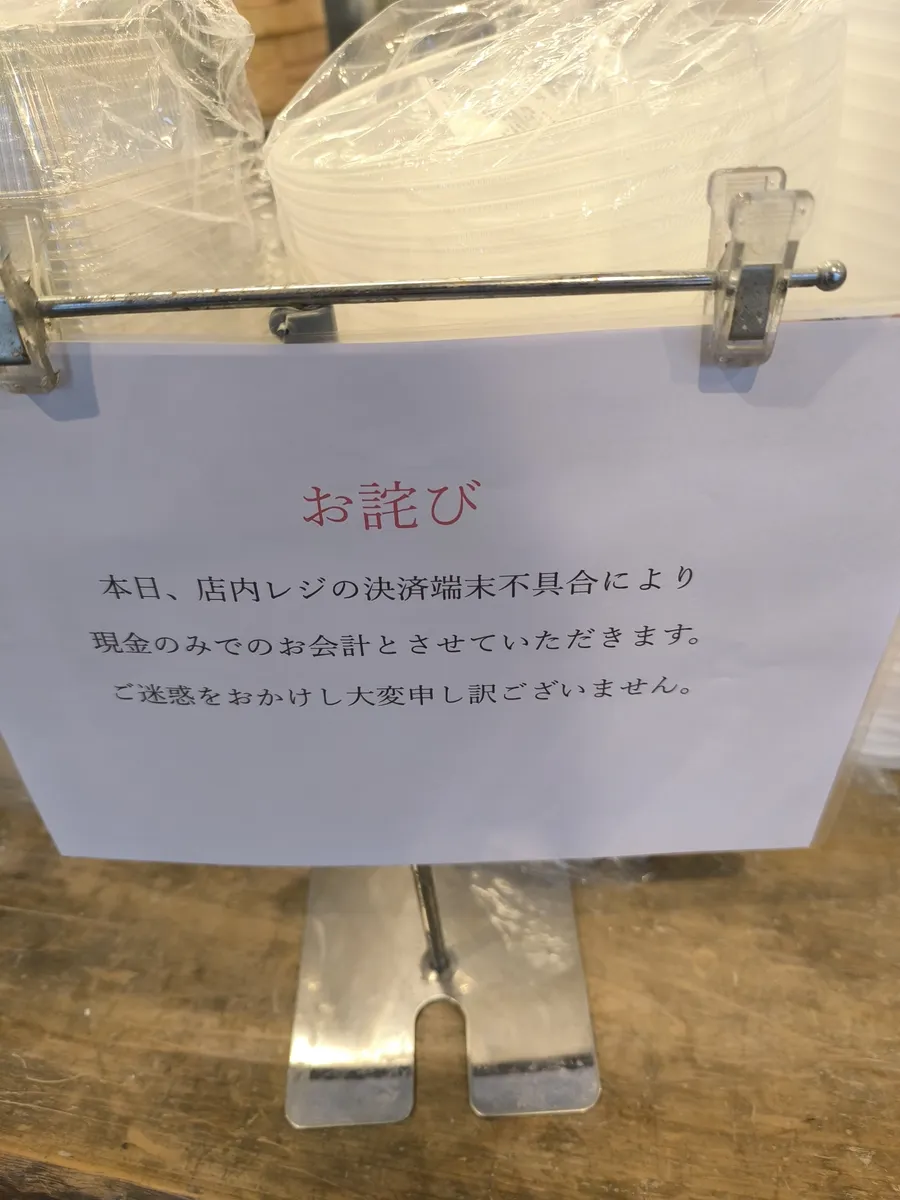 お詫び
本日、店内レジの決済端末不具合により
現金のみでのお会計とさせていただきます。
ご迷惑をおかけし大変申し訳ございません。